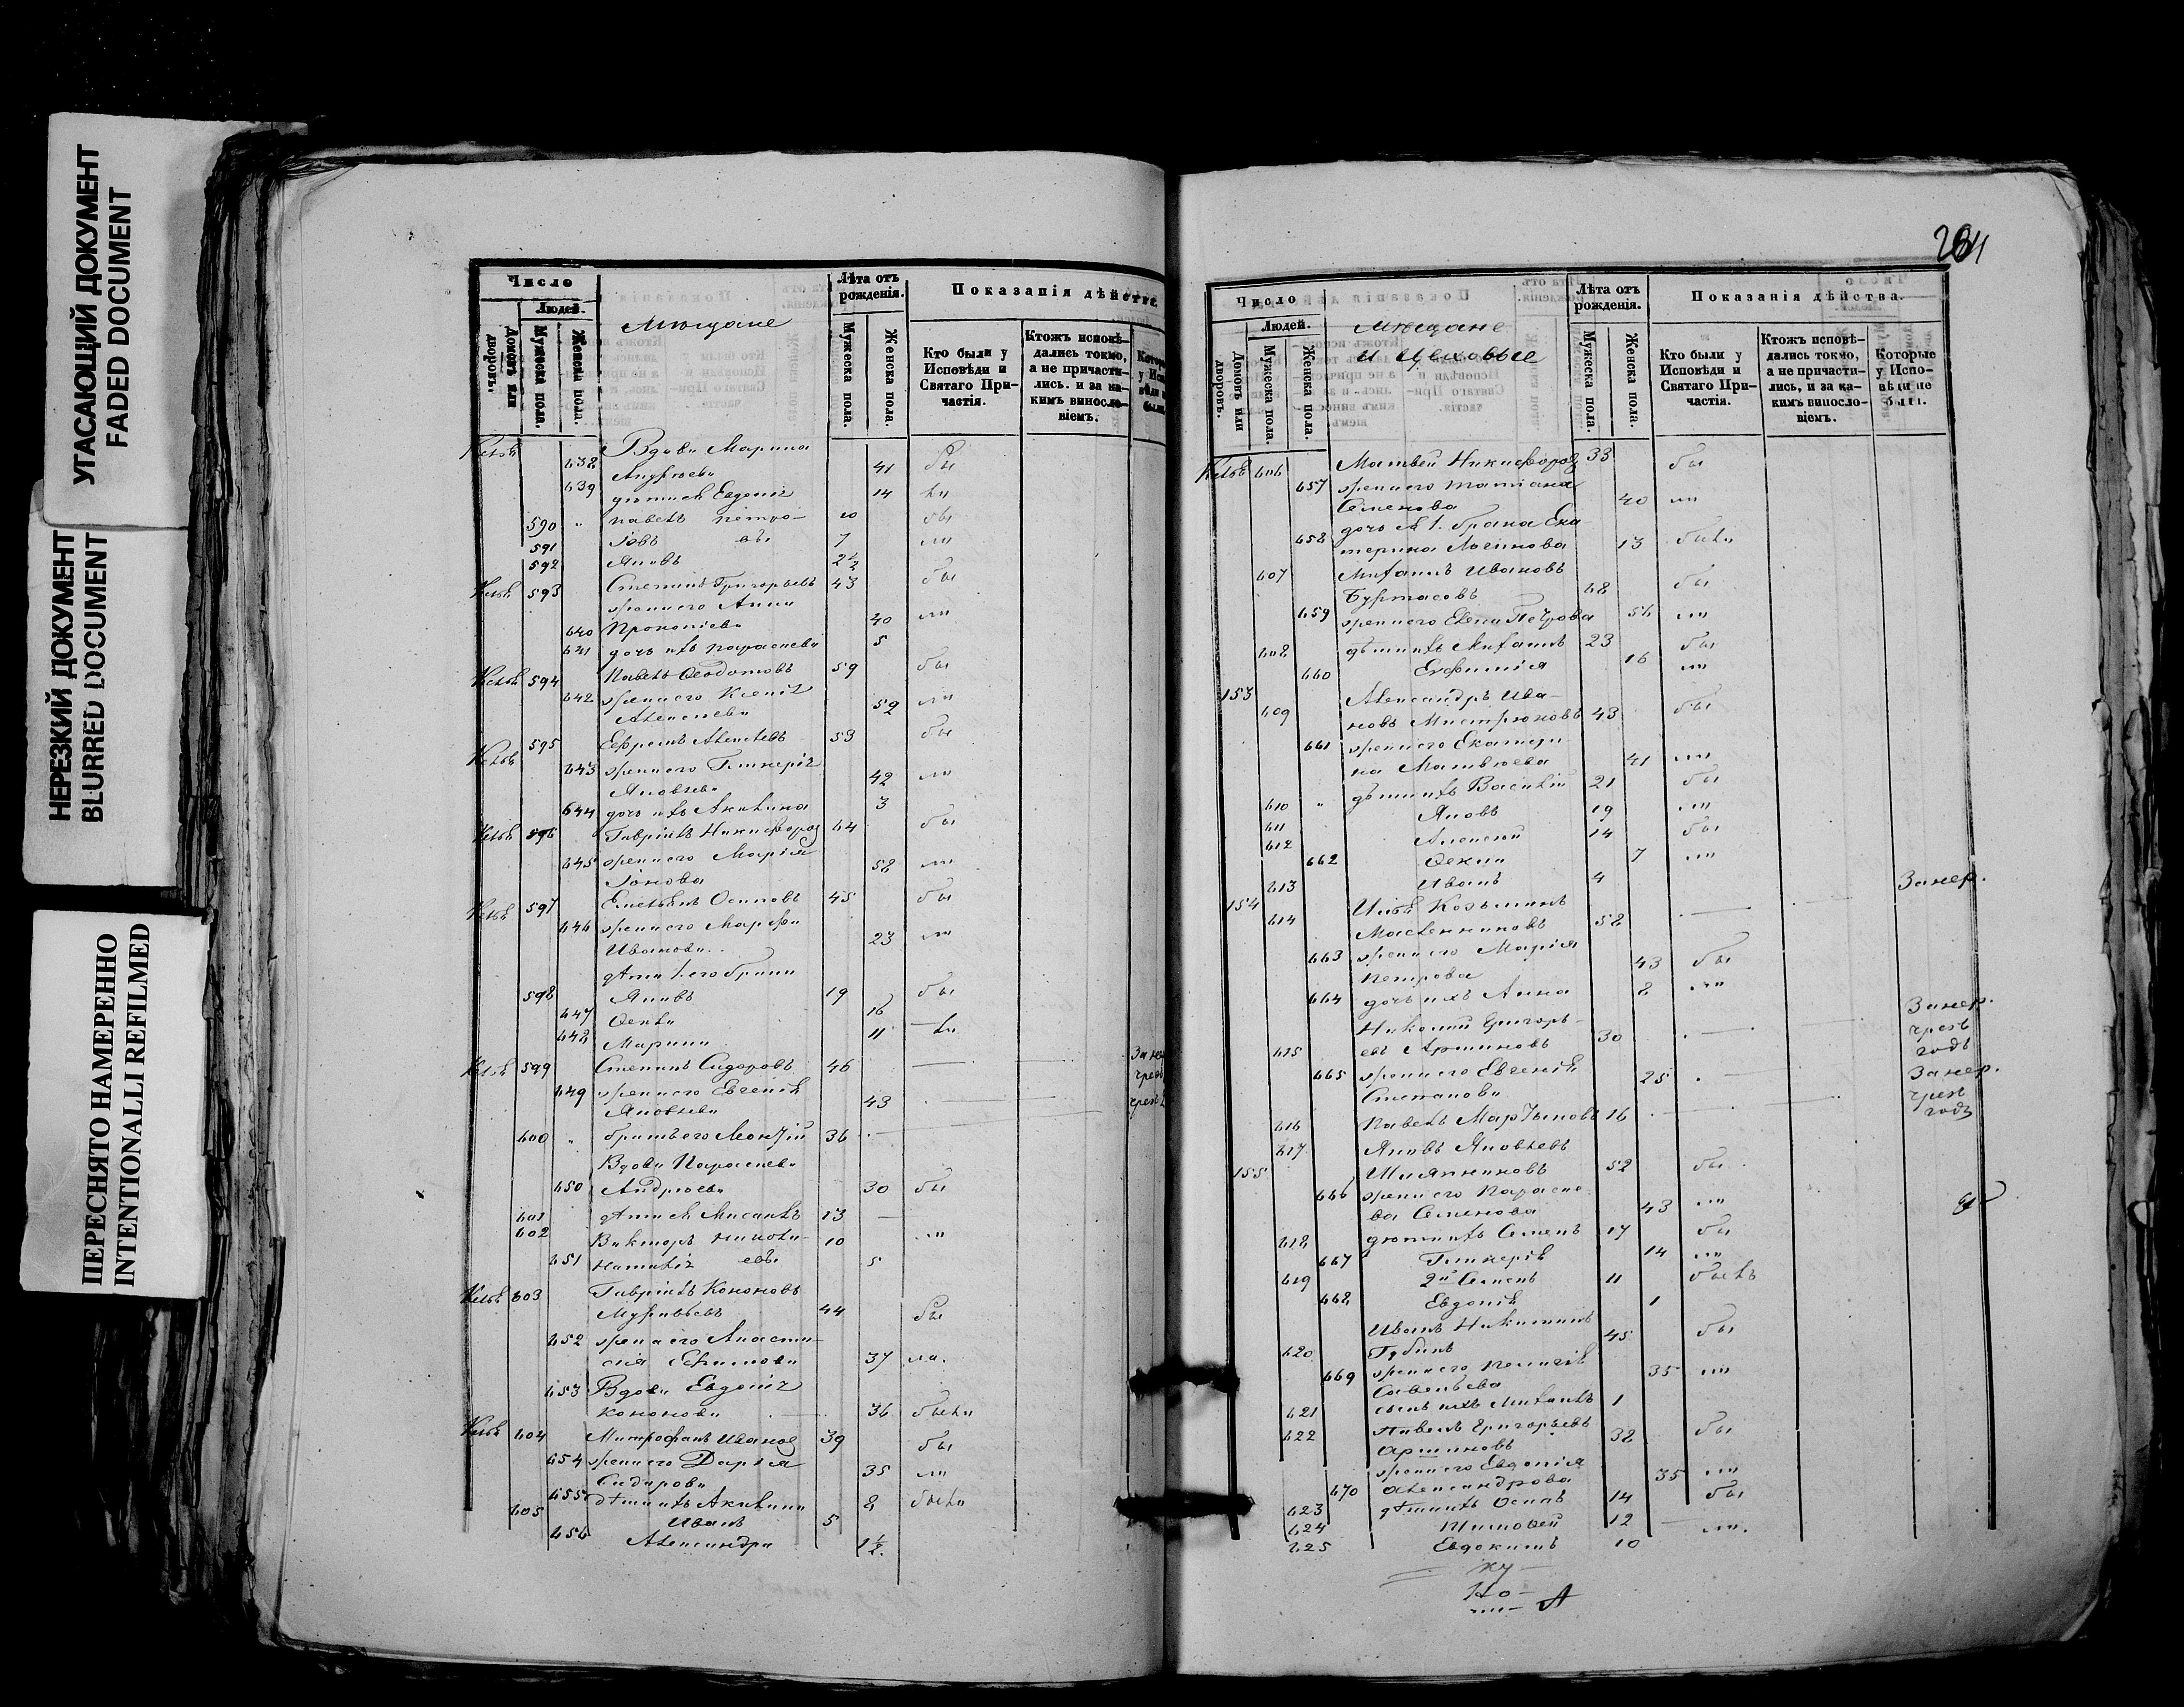 УГАСАЮЩИЙ ДОКУМЕНТ
FADED DOCUMENT
НЕРЕЗКИЙ ДОКУМЕНТ
BLURRED DOCUMENT
ПЕРЕСНЯТО НАМЕРЕННО
INTENTIONALLI REFILMED
Число
Людей.
Домовъ или дворовъ.
Мужеска пола.
Женска пола.
Мѣщане
Лѣта отъ рожденія.
Мужеска пола.
Женска пола.
Показанія дѣйства.
Кто были у Исповѣди и Святаго Причастія.
Ктожъ исповѣдались токмо, а не причастились. и за какимъ винословіемъ.
638 Вдова Марина
Андреева 41 бы
639 дѣти ея Евдокія 14 ла
590 „ Павелъ Петро- 10 бы
591 Іовъ въ 7 ли
592 Яковъ 2½
593 Степанъ Григорьевъ 43 бы
жена его Анна
640 Прокопіева 40 ли
641 дочь ихъ Параскева 5
594 Павелъ Ѳеодотовъ 59 бы
642 жена его Ксенія
Алексѣева 52 ли
595 Ефремъ Алексѣевъ 53 бы
643 жена его Гликерія
Яковлева 42 ли
644 дочь ихъ Акилина 3
596 Гавріилъ Никифоров 64 бы
645 жена его Марія
Іонова 58 ли
597 Емельянъ Осиповъ 45 бы
646 жена его Марѳа
Иванова 23 ли
дѣти 1. его брака
598 Яковъ 19 бы
647 Ѳекла 16
648 Марина 11 ла
599 Степанъ Сидоровъ 46
649 жена его Евгенія
Яковлева 43
600 „ братъ его Леонтій 36
Вдова Параскева
650 Андреева 30 бы
601 дѣти ея Михаилъ 13
602 Викторъ Никола- 10 ли
651 Наталія евы 5
603 Гавріилъ Кононовъ
Муравьевъ 44 бы
652 жена его Анаста-
сія Екимова 37 ла.
653 Вдова Евдокія
Кононова 36 была
604 Митрофанъ Иванов 39 бы
654 жена его Дарья
Сидорова 35 ли
655 дѣти ихъ Акилина 8 была
605 Иванъ 5
656 Александра 1½.
264
Число
Людей.
Домовъ или дворовъ.
Мужеска пола.
Женска пола.
Мѣщане
и Цеховые
Лѣта отъ рожденія.
Мужеска пола.
Женска пола.
Показанія дѣйства.
Кто были у Исповѣди и Святаго Причастія.
Ктожъ исповѣдались токмо, а не причастились, и за какимъ винословіемъ.
Которые у Исповѣди не были.
606 Матвей Никифоров 33 бы
657 жена его Татіана
Семенова 40 ли
дочь ея 1. брака Ека-
658 терина Логинова 13 была
607 Михаилъ Ивановъ
Буртасовъ 68 бы
659 жена его Елена Петрова 56 ли
608 дѣти ихъ Михаилъ 23 бы
660 Евфимія 16 ли
153 Александръ Ива-
609 новъ Мистрюковъ 43 бы
661 жена его Екатери
на Матвѣева 41 ли
610 „ дѣти ихъ Василій 21 бы
611 Яковъ 19 ли
612 Алексѣй 14 бы
662 Ѳекла 7 ли
613 Иванъ 4
154 Илья Козьминъ Занер.
614 Масленниковъ 58
663 жена его Марія
Петрова 43 бы
664 дочь ихъ Анна 8 ли
Николай Григорь-
615 евъ Аршиновъ 30 Занер.
чрезъ
годъ
665 жена его Евгенія
Степанова 25 Занер.
чрезъ
годъ
616 Павелъ Мартыновъ 16
617 Яковъ Яковлевъ
155 Шляпниковъ 52 бы
666 жена его Параске-
ва Семенова 43 ли
618 дѣти ихъ Семенъ 17 бы
667 Гликерія 14 ли
619 2й Семенъ 11 былъ
668 Евдокія 1
Иванъ Никитинъ
620 Губинъ 45 бы
669 жена его Пелагія
Савельева 35 ли
621 сынъ ихъ Михаилъ 1
622 Павелъ Григорьевъ
Аршиновъ 38 бы
жена его Евдокія
670 Александрова 35 ли
623 дѣти ихъ Осипъ 14 бы
624 Тимоѳей 12
625 Евдокимъ 10 ли.